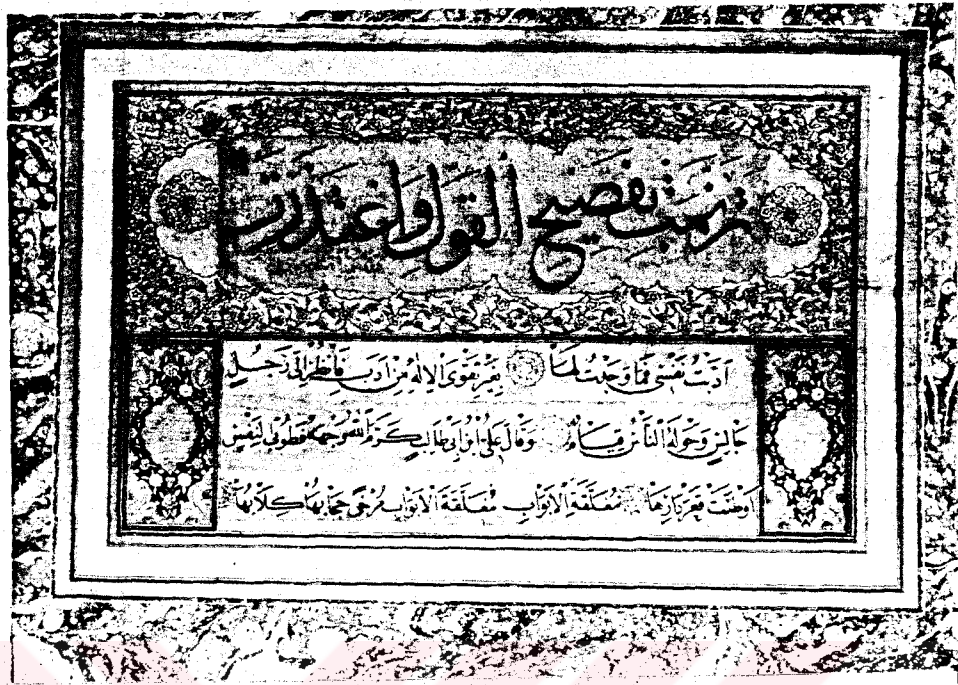 ترنمت بفصيح القول واعتذرت
ادبت نفسي فما وجدت لها بغير تقوى الاله من ادب فانظر الى رجل
جالس وحوله الناس قيام وقال علي ابن ابي طالب كرم الله وجهه فطوبى لنفس
اوطنت قعر دارها مغلقة الابواب مغلقة الابواب مرخى حجابها كلابها